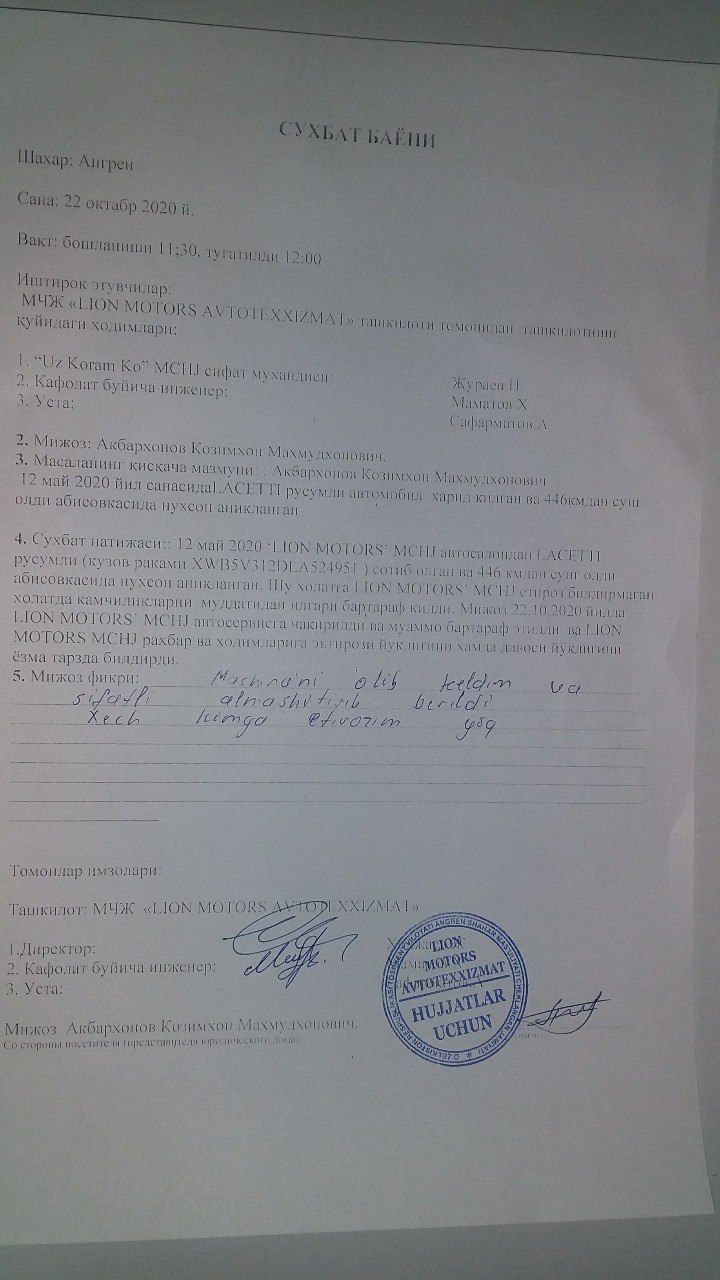 СУХБАТ БАЁНИ
Шахар: Ангрен
Сана: 22 октабр 2020 й.
Вакт: бошланиши 11:30, тугатилди 12:00
Иштирок этувчилар:
МЧЖ «LION MOTORS AVTOTEXXIZMAT» ташкилоти томонидан ташкилотнинг
куйидаги ходимлари:
1. “Uz Koram Ko” MCHJ сифат мухандиси: Жураев Н.
2. Кафолат буйича инженер: Маматов Х
3. Уста: Сафарматов.А
2. Мижоз: Акбархонов Козимхон Махмудхонович.
3. Масаланинг кискача мазмуни: : Акбархонов Козимхон Махмудхонович
12 май 2020 йил санасидаLACETTI русумли автомобил харид килган ва 446кмдан сунг
олди абисовкасида нухсон аникланган
4. Сухбат натижаси:: 12 май 2020 ‘LION MOTORS’ MCHJ автосалондан LACETTI
русумли (кузов раками XWB5V312DLA524951 ) сотиб олган ва 446 кмдан сунг олди
абисовкасида нухсон аникланган. Шу холатга LION MOTORS’ MCHJ етироз билдирмаган
холатда камчиликларни муддатидан илгари бартараф килди. Мижоз 22.10.2020 йилда
LION MOTORS’ MCHJ автосервисга чакирилди ва муаммо бартараф этилди ва LION
MOTORS MCHJ рахбар ва ходимларига эътирози йуклигини хамда даъвоси йуклигини
ёзма тарзда билдирди.
5. Мижоз фикри: Mashina'ni olib keldim va
sifatli almashtirib berildi
Xech kimga etirozim yoq
Томонлар имзолари:
Ташкилот: МЧЖ «LION MOTORS AVTOTEXXIZMAT»
1.Директор:
2. Кафолат буйича инженер:
3. Уста:
LION
MOTORS
AVTOTEXXIZMAT
HUJJATLAR
UCHUN
Мижоз Акбархонов Козимхон Махмудхонович.
Со стороны посетителя (представителя юридического лица)